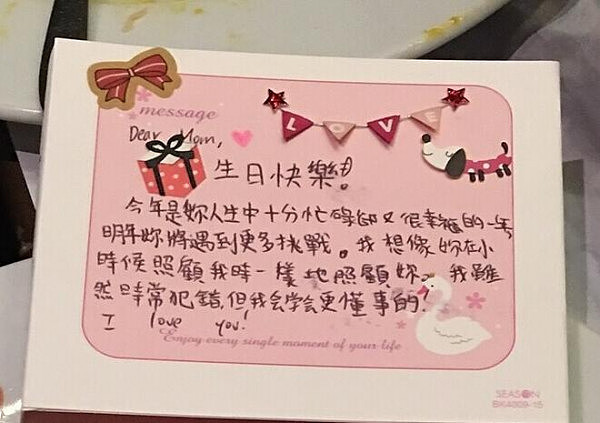 message
LOVE
Dear Mom,
生日快樂!
今年是妳人生中十分忙碌卻又很幸福的一年
明年妳將遇到更多挑戰。我想像妳在小
時候照顧我時一樣地照顧妳。我雖
然時常犯錯,但我会学会更懂事的!
I love you!
Enjoy every single moment of your life
SEASON
BK4009-15